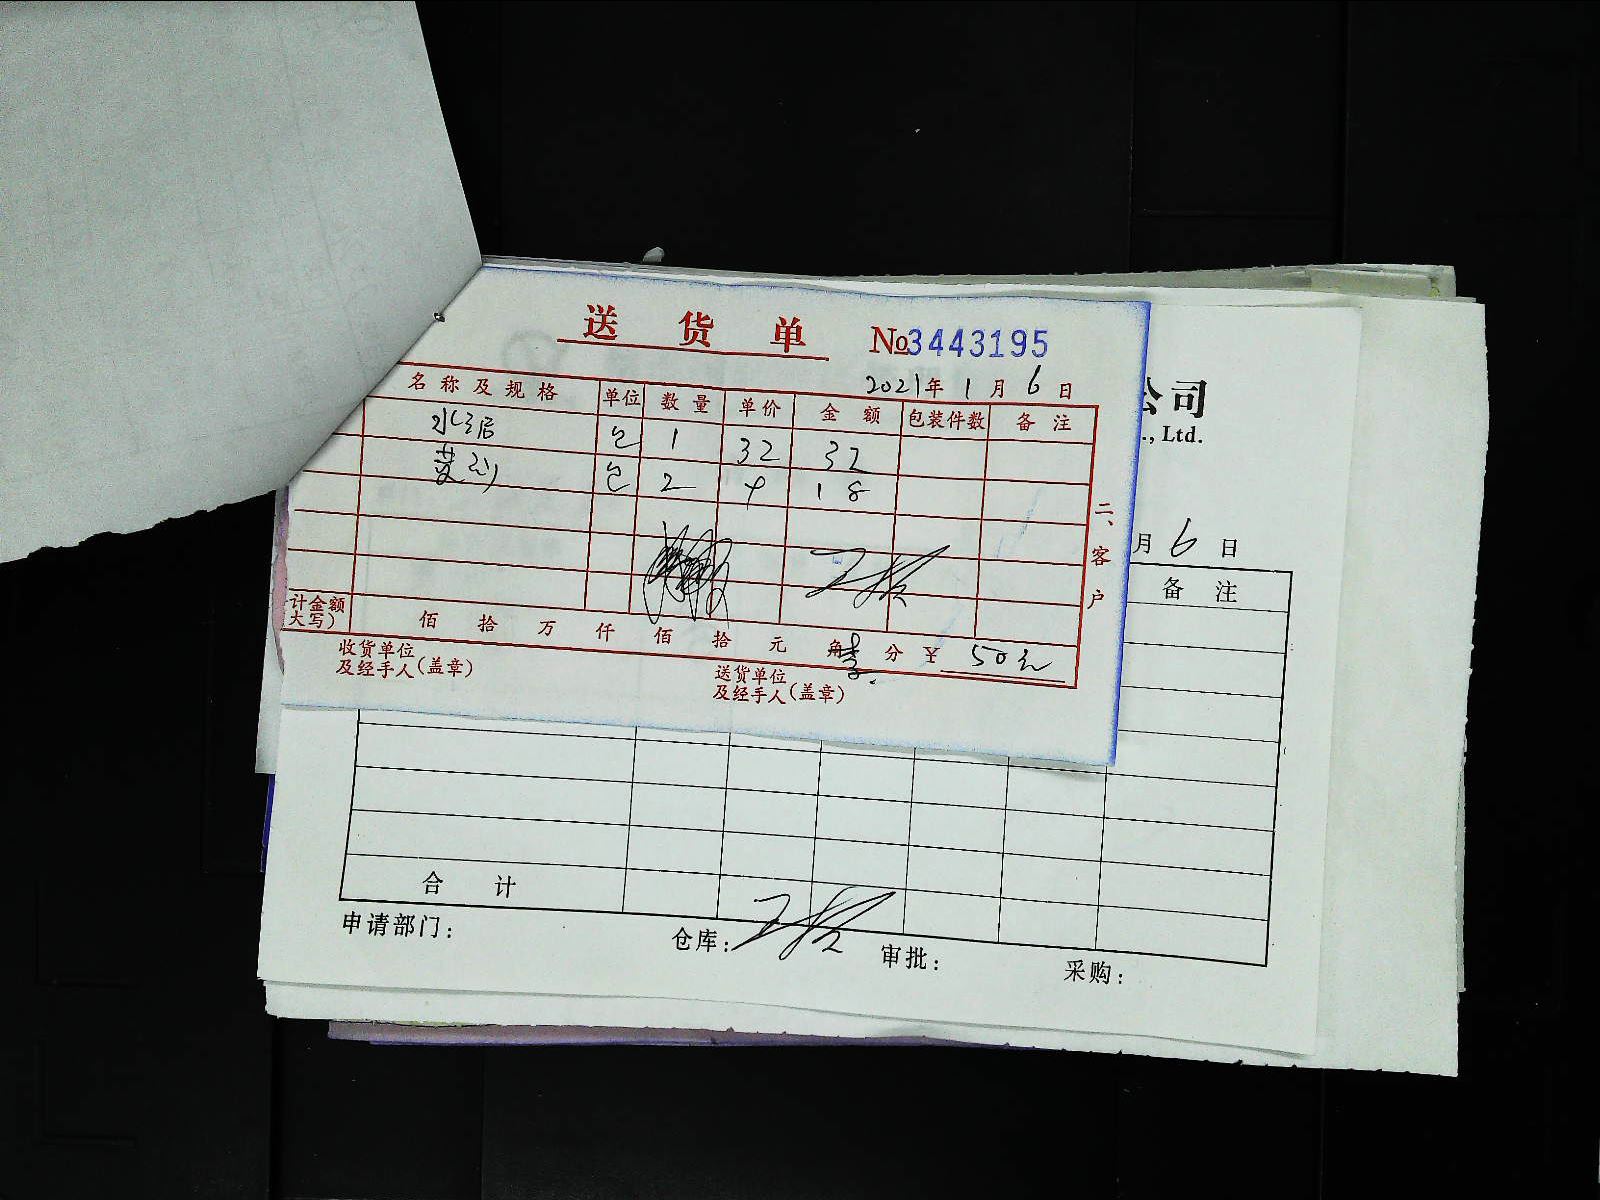 送 货 单 №3443195
2021年 1 月 6 日
名称及规格 单位 数量 单价 金额 包装件数 备注
水泥 包 1 32 32
黄沙 包 2 9 18
计金额
大写) 佰 拾 万 仟 佰 拾 元 角 分 ¥ 50元
收货单位
及经手人(盖章)
送货单位
及经手人(盖章)
二、客户
公司
., Ltd.
月 6 日
备 注
合 计
申请部门: 仓库: 审批: 采购: